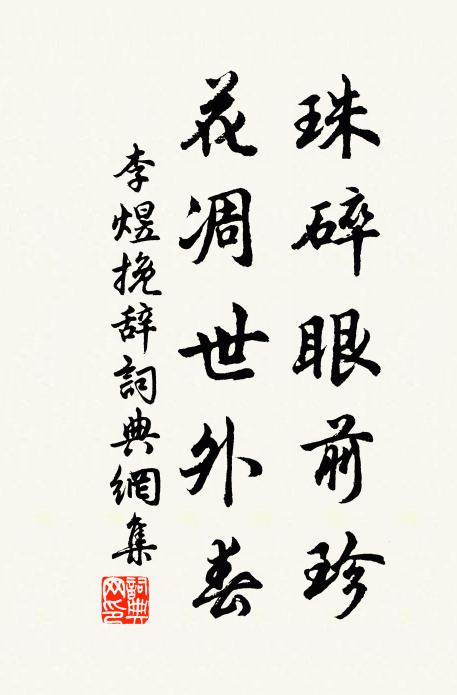 珠碎眼前珍
花凋世外春
李煜挽辞詞典網集
詞典网印